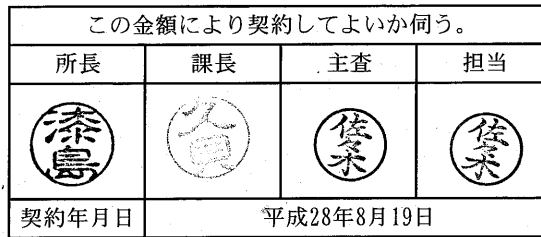 この金額により契約してよいか伺う。
所長 課長 主査 担当
漆島 久貝 佐々木 佐々木
契約年月日 平成28年8月19日